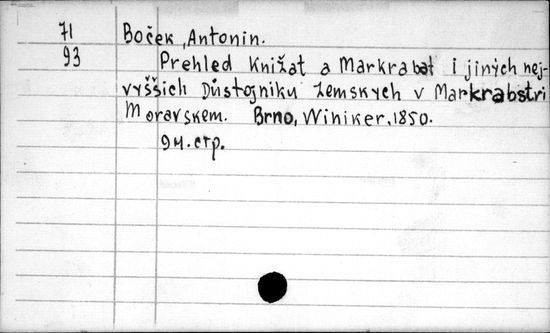 71 Boček, Antonin.
93 Prehled Knižat a Markrabat i jiných nej-
vyššich Důstojniku zemskych v Markrabstri
Moravskem. Brno, Winiker, 1850.
94. стр.